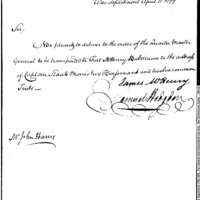 War department April 11 1799
Sir
Be pleased to deliver to the order of the Quarter Master
General to be transported to Fort McHenry Baltimore to the address of
Captain Staats Morris two Horsemans and twelve common
Tents.
James McHenry
Samuel Hodgdon
Mr John Harris